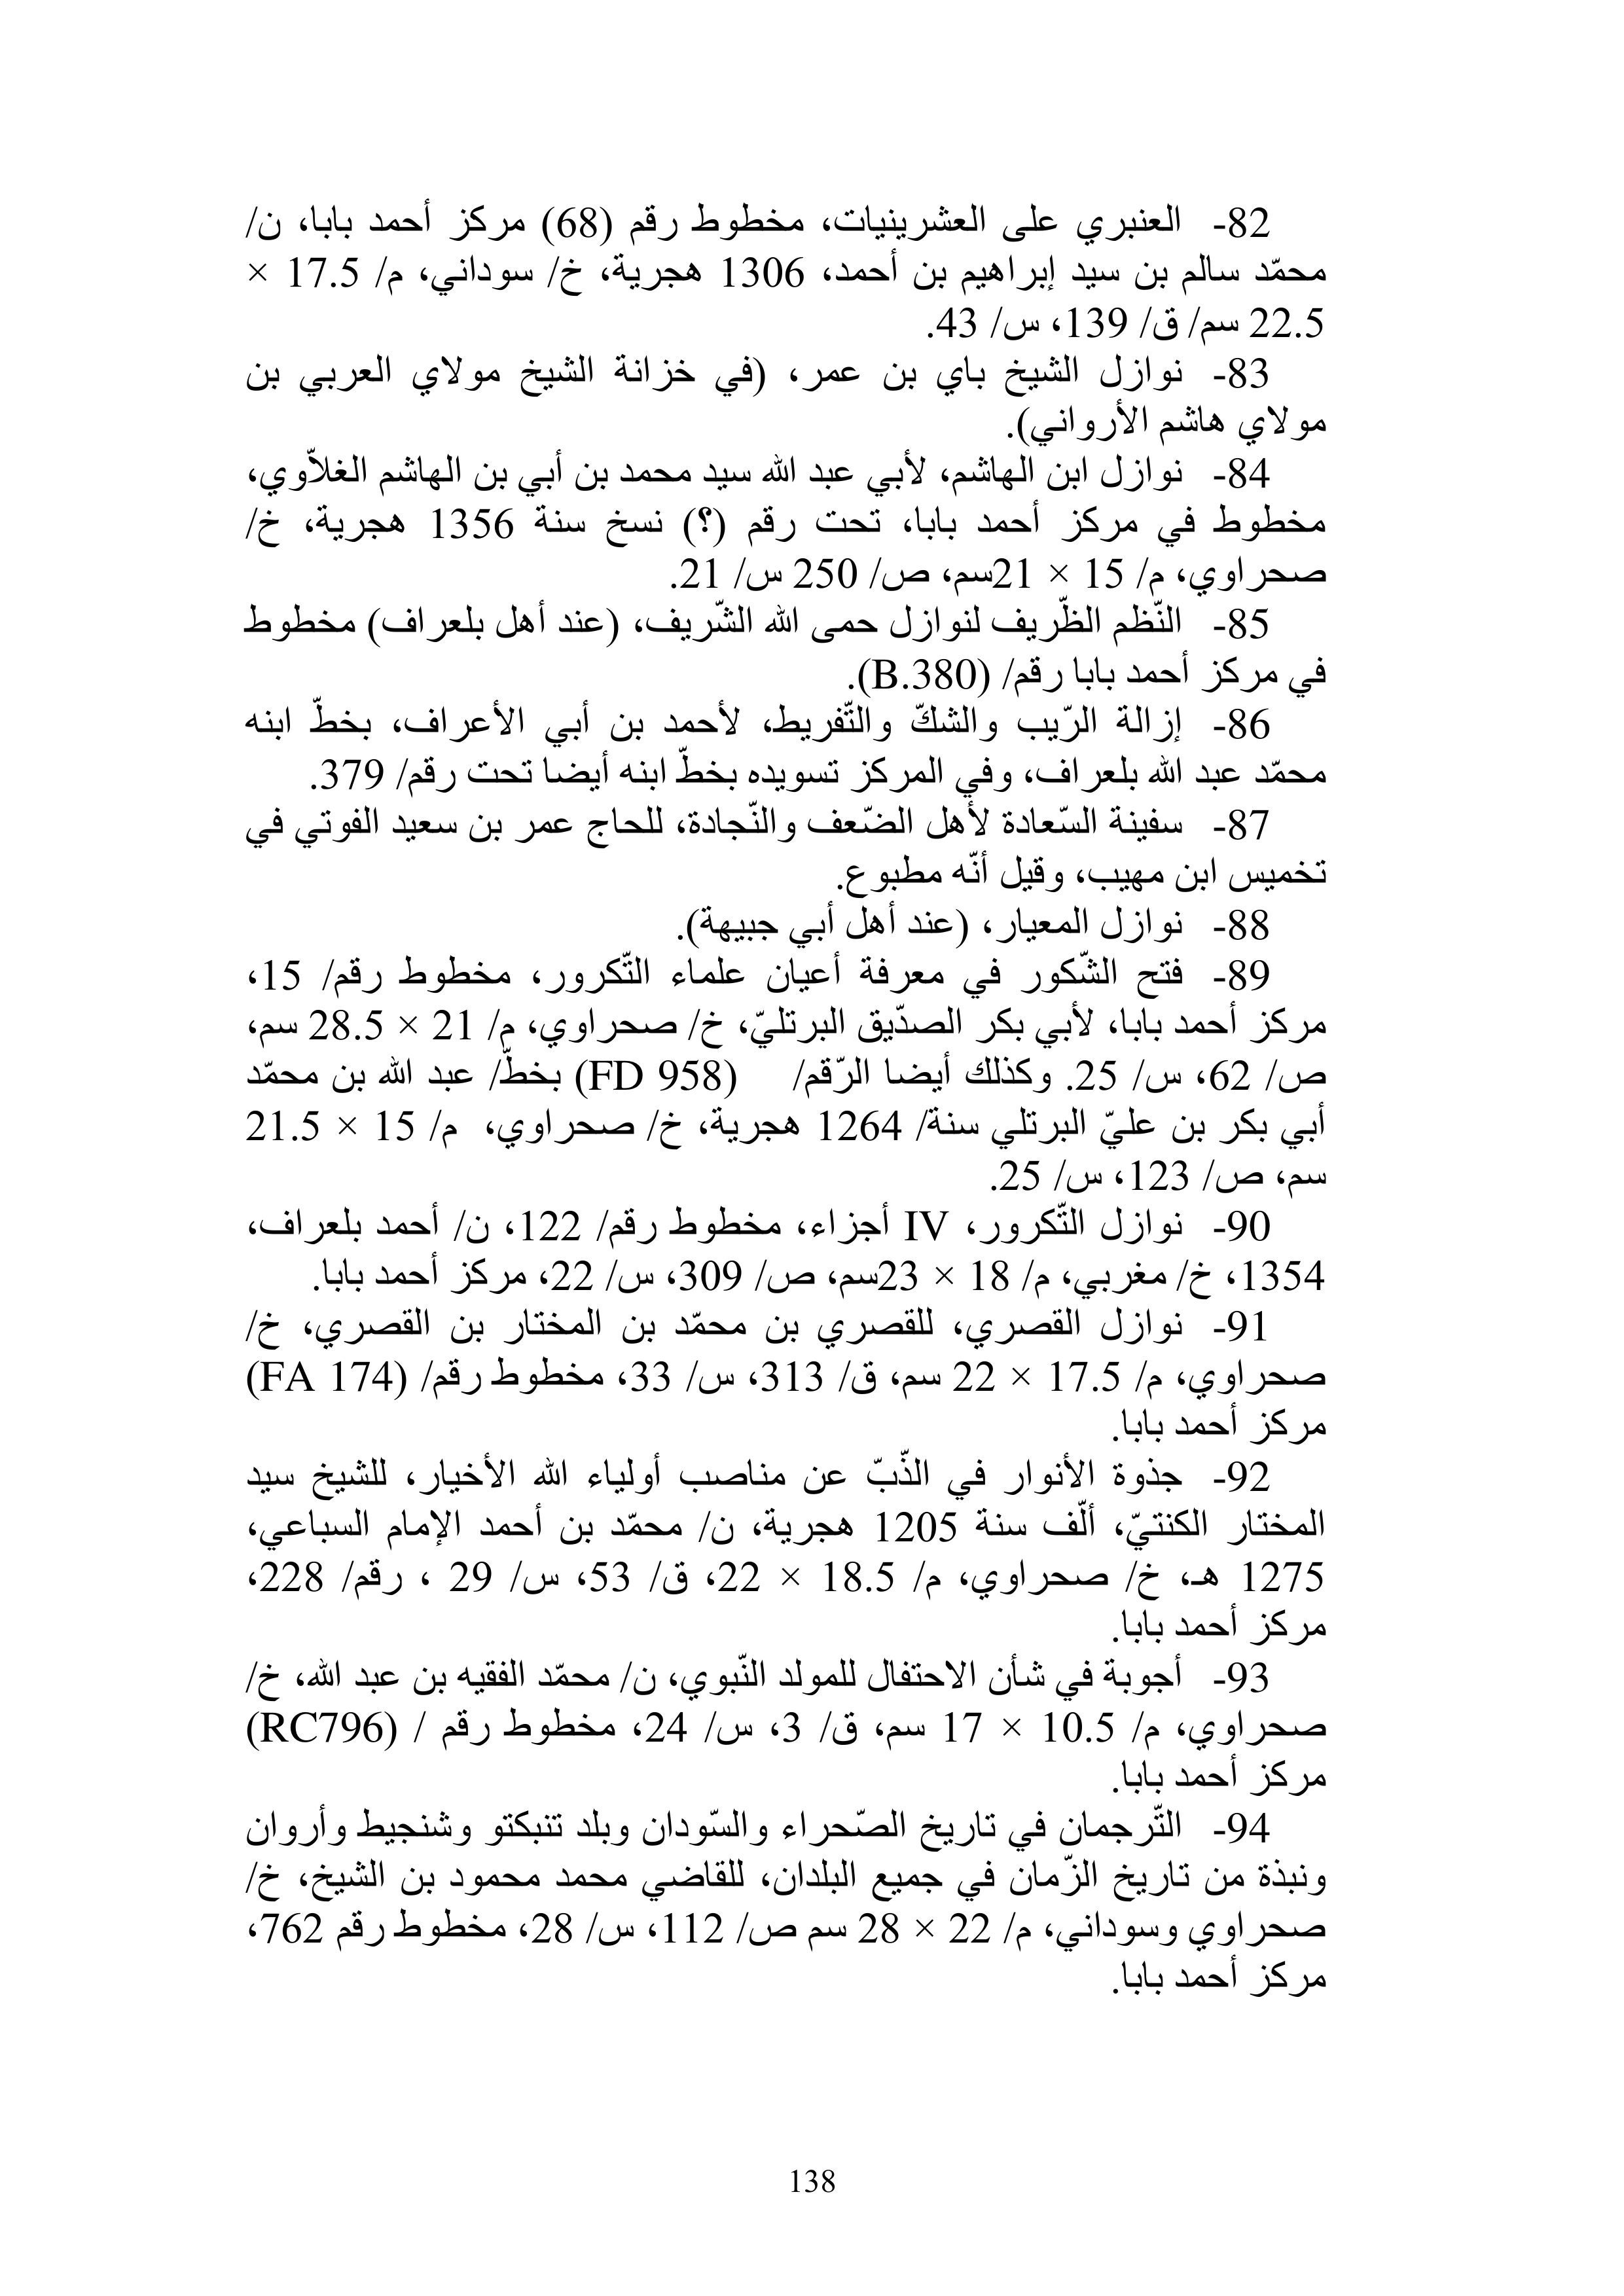 82- العنبري على العشرينيات، مخطوط رقم (68) مركز أحمد بابا، ن/
محمّد سالم بن سيد إبراهيم بن أحمد، 1306 هجرية، خ/ سوداني، م/ 17.5 ×
22.5 سم/ ق/ 139، س/ 43.
83- نوازل الشيخ باي بن عمر، (في خزانة الشيخ مولاي العربي بن
مولاي هاشم الأرواني).
84- نوازل ابن الهاشم، لأبي عبد الله سيد محمد بن أبي بن الهاشم الغلاّوي،
مخطوط في مركز أحمد بابا، تحت رقم (؟) نسخ سنة 1356 هجرية، خ/
صحراوي، م/ 15 × 21سم، ص/ 250 س/ 21.
85- النّظم الظّريف لنوازل حمى الله الشّريف، (عند أهل بلعراف) مخطوط
في مركز أحمد بابا رقم/ (B.380).
86- إزالة الرّيب والشكّ والتّفريط، لأحمد بن أبي الأعراف، بخطّ ابنه
محمّد عبد الله بلعراف، وفي المركز تسويده بخطّ ابنه أيضا تحت رقم/ 379.
87- سفينة السّعادة لأهل الضّعف والنّجادة، للحاج عمر بن سعيد الفوتي في
تخميس ابن مهيب، وقيل أنّه مطبوع.
88- نوازل المعيار، (عند أهل أبي جبيهة).
89- فتح الشّكور في معرفة أعيان علماء التّكرور، مخطوط رقم/ 15،
مركز أحمد بابا، لأبي بكر الصدّيق البرتليّ، خ/ صحراوي، م/ 21 × 28.5 سم،
ص/ 62، س/ 25. وكذلك أيضا الرّقم/ (FD 958) بخطّ/ عبد الله بن محمّد
أبي بكر بن عليّ البرتلي سنة/ 1264 هجرية، خ/ صحراوي، م/ 15 × 21.5
سم، ص/ 123، س/ 25.
90- نوازل التّكرور، IV أجزاء، مخطوط رقم/ 122، ن/ أحمد بلعراف،
1354، خ/ مغربي، م/ 18 × 23سم، ص/ 309، س/ 22، مركز أحمد بابا.
91- نوازل القصري، للقصري بن محمّد بن المختار بن القصري، خ/
صحراوي، م/ 17.5 × 22 سم، ق/ 313، س/ 33، مخطوط رقم/ (FA 174)
مركز أحمد بابا.
92- جذوة الأنوار في الذّبّ عن مناصب أولياء الله الأخيار، للشيخ سيد
المختار الكنتيّ، ألّف سنة 1205 هجرية، ن/ محمّد بن أحمد الإمام السباعي،
1275 هـ، خ/ صحراوي، م/ 18.5 × 22، ق/ 53، س/ 29 ، رقم/ 228،
مركز أحمد بابا.
93- أجوبة في شأن الاحتفال للمولد النّبوي، ن/ محمّد الفقيه بن عبد الله، خ/
صحراوي، م/ 10.5 × 17 سم، ق/ 3، س/ 24، مخطوط رقم / (RC796)
مركز أحمد بابا.
94- التّرجمان في تاريخ الصّحراء والسّودان وبلد تنبكتو وشنجيط وأروان
ونبذة من تاريخ الزّمان في جميع البلدان، للقاضي محمد محمود بن الشيخ، خ/
صحراوي وسوداني، م/ 22 × 28 سم ص/ 112، س/ 28، مخطوط رقم 762،
مركز أحمد بابا.
138